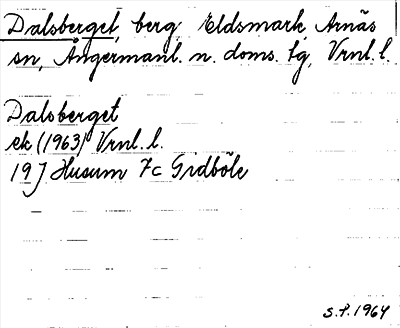 Dalsberget, berg, Eldsmark, Arnäs
sn, Ångermanl. n. doms. tg, Vrnl. l.
Dalsberget
ek (1963) Vrnl. l.
19 J Husum 7c Gidböle
S.F. 1964